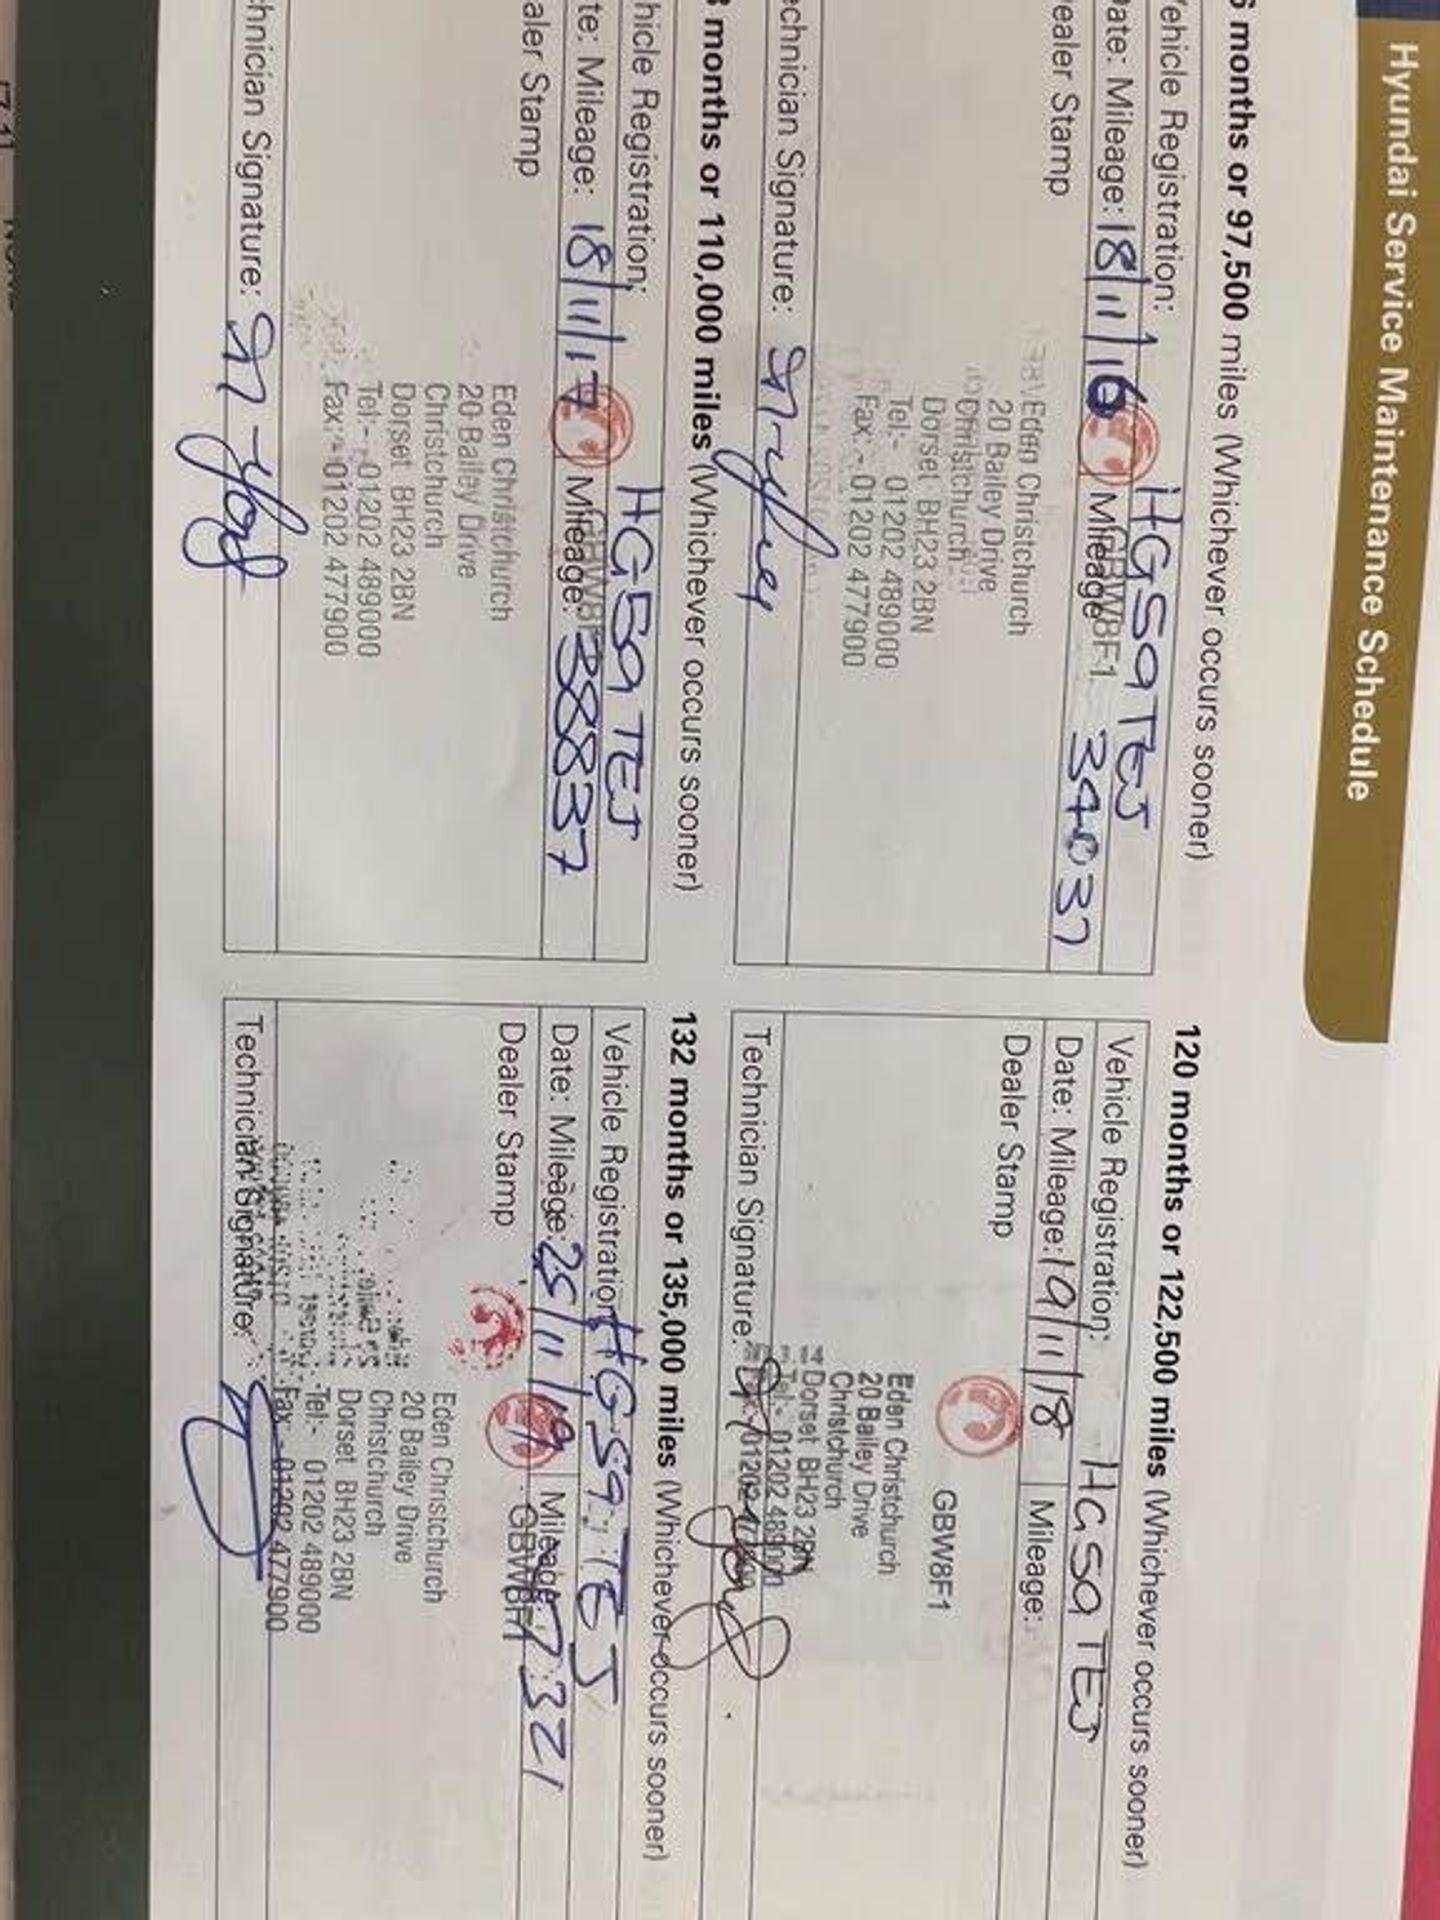 Hyundai Service Maintenance Schedule
6 months or 97,500 miles (Whichever occurs sooner)
Vehicle Registration: HG59 TEJ
Date: Mileage: 18/11/16 Mileage 34037
GBW8F1
ealer Stamp
Eden Christchurch
20 Bailey Drive
Christchurch
Dorset BH23 2BN
Tel:- 01202 489000
Fax:- 01202 477900
echnician Signature:
8 months or 110,000 miles (Whichever occurs sooner)
hicle Registration: HG59 TEJ
te: Mileage: 18/11/17 Mileage: 38837
aler Stamp
Eden Christchurch
20 Bailey Drive
Christchurch
Dorset BH23 2BN
Tel:- 01202 489000
Fax:- 01202 477900
hnician Signature:
120 months or 122,500 miles (Whichever occurs sooner)
Vehicle Registration: HG59 TEJ
Date: Mileage: 19/11/18 Mileage:
Dealer Stamp
GBW8F1
Eden Christchurch
20 Bailey Drive
Christchurch
Dorset BH23 2BN
Tel:- 01202 489000
Technician Signature:
132 months or 135,000 miles (Whichever occurs sooner)
Vehicle Registration HG59 TEJ
Date: Mileage: 25/11/19 Mileage 7321
Dealer Stamp
GBW8F1
Eden Christchurch
20 Bailey Drive
Christchurch
Dorset BH23 2BN
Tel:- 01202 489000
Fax:- 01202 477900
Technician Signature: